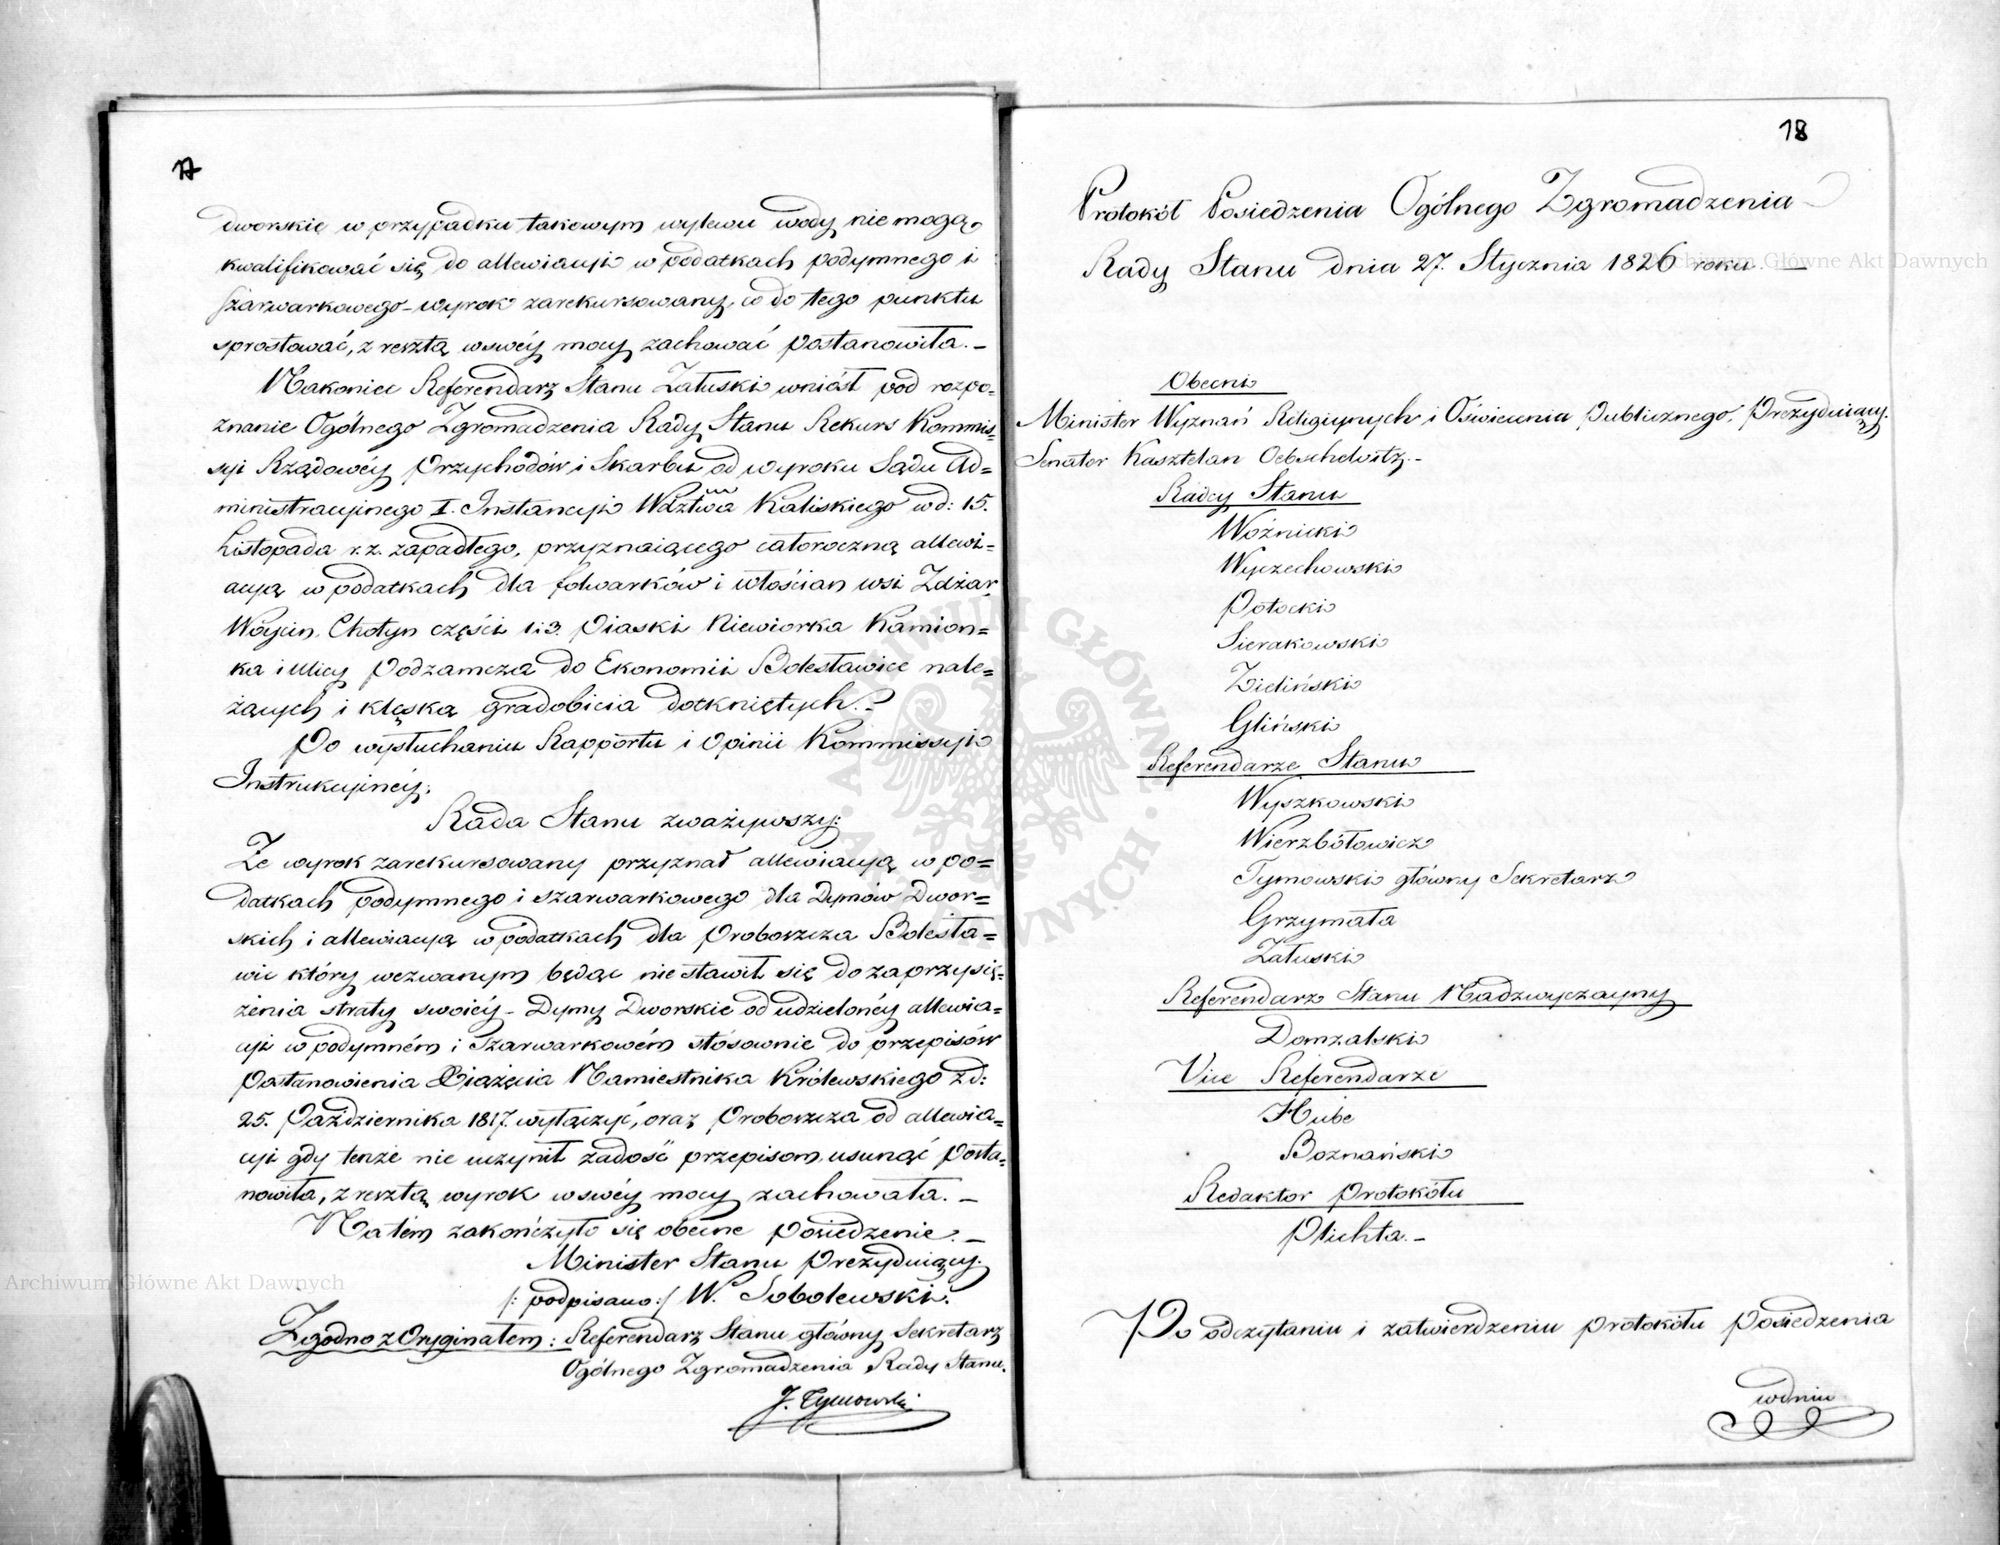 17
dworskie w przypadku takowym wylewu wody nie mogą
kwalifikować się do allewiacyi w podatkach podymnego i
szarwarkowego – wyrok zarekursowany, co do tego punktu
sprostować, z resztą w swéy mocy zachować postanowiła. –
Nakoniec Referendarz Stanu Załuski wniósł pod rozpo=
znanie Ogólnego Zgromadzenia Rady Stanu Rekurs Kommis=
syi Rządowéy Przychodów i Skarbu od wyroku Sądu Ad=
ministracyjnego I. Instancyi Wdztwa Kaliskiego w d: 15.
Listopada r. z. zapadłego, przyznaiącego całoroczną allewi=
acyą w podatkach dla folwarków i włościan wsi Zdżar,
Wóycin, Chotyn części 1 i 3. Piaski Niewiorka Kamion=
ka i Ulicy Podzamcza do Ekonomii Bolesławice nale=
żących i klęską gradobicia dotkniętych. –
Po wysłuchaniu Rapportu i Opinii Kommissyi
Instrukcyinéy,
Rada Stanu zważywszy:
Że wyrok zarekursowany przyznał allewiacyą w po=
datkach podymnego i szarwarkowego dla Dymów Dwor=
skich i allewiacyą w podatkach dla Proboszcza Bolesła=
wic który wezwanym będąc nie stawił się do zaprzysię=
żenia straty swoiéy – Dymy Dworskie od udzielonéy allewia=
cyi w podymném i Szarwarkowém stósownie do przepisów
Postanowienia Xiążęcia Namiestnika Królewskiego z d:
25. Października 1817. wyłączyć, oraz Proboszcza od allewia=
cyi gdy tenże nie uczynił zadość przepisom, usunąć posta=
nowiła, z resztą wyrok w swéy mocy zachowała. –
Na tém zakończyło się obecne posiedzenie. –
Minister Stanu Prezyduiący.
/: podpisano :/ W. Sobolewski.
Zgodno z Oryginałem: Referendarz Stanu główny Sekretarz
Ogólnego Zgromadzenia Rady Stanu.
J. Tymowski
18
Protokół Posiedzenia Ogólnego Zgromadzenia
Rady Stanu dnia 27. Stycznia 1826 roku. –
Obecni
Minister Wyznań Religiynych i Oświecenia Publicznego, Prezyduiący.
Senator Kasztelan Oebschelwitz. –
Radcy Stanu
Woźnicki
Wyczechowski
Potocki
Sierakowski
Zieliński
Gliński
Referendarze Stanu
Wyszkowski
Wierzbółowicz
Tymowski główny Sekretarz
Grzymała
Załuski
Referendarz Stanu Nadzwyczayny
Domzalski
Vice Referendarze
Hube
Boznański
Redaktor protokółu
Plichta. –
Po odczytaniu i zatwierdzeniu protokółu posiedzenia
w dniu
Archiwum Główne Akt Dawnych
Archiwum Główne Akt Dawnych
ARCHIWUM GŁÓWNE AKT DAWNYCH